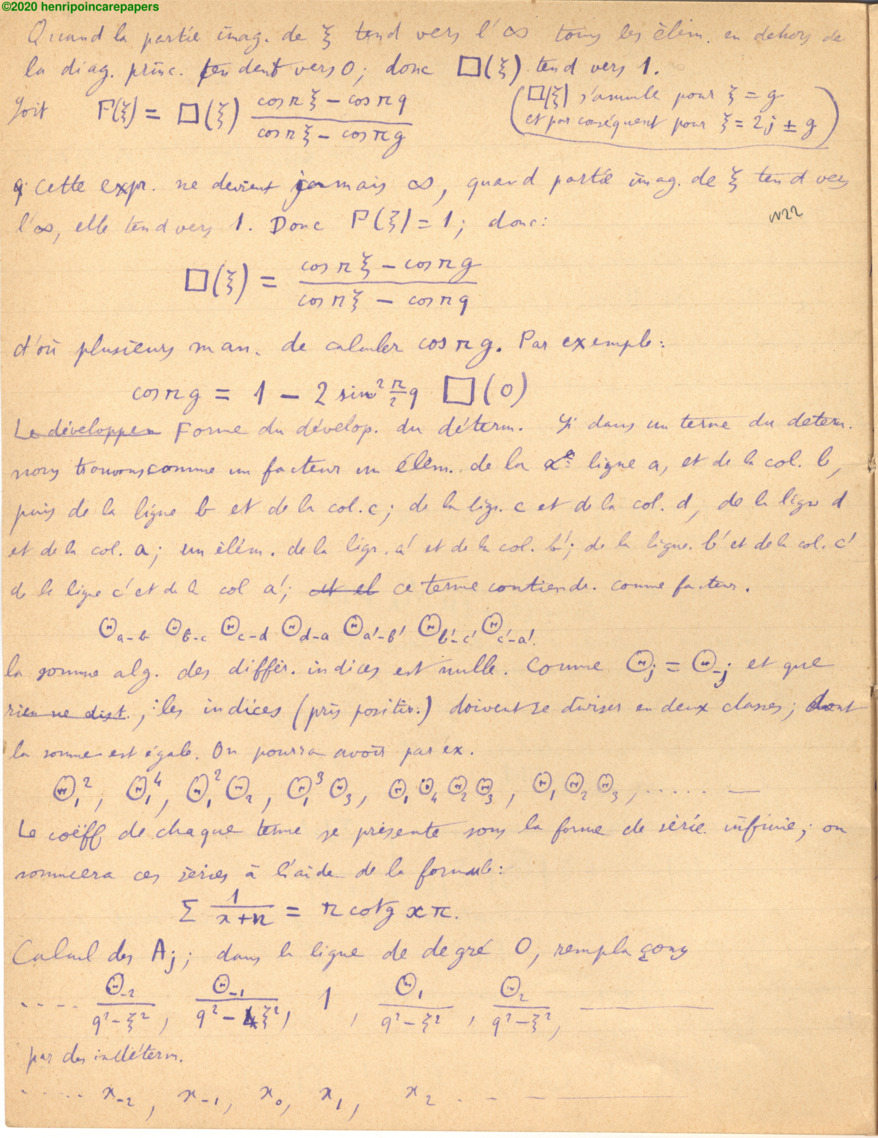 ©2020 henripoincarepapers
Quand la partie imag. de ξ tend vers l'∞ tous les élém. en dehors de
la diag. princ. tendent vers 0; donc □(ξ) tend vers 1.
Soit P(ξ) = □(ξ) (cos π ξ – cos π q)/(cos π ξ – cos π g) (□(ξ) s'annule pour ξ = g
et par conséquent pour ξ = 2j ± g)
cette expr. ne devient jamais ∞, quand partie imag. de ξ tend vers
N22
l'∞, elle tend vers 1. Donc P(ξ) = 1; donc:
□(ξ) = (cos π ξ – cos π g)/(cos π ξ – cos π q)
d'où plusieurs man. de calculer cos π g. Par exemple:
cos π g = 1 – 2 sin² π/2 q □(0)
Le développem Forme du dévelop. du déterm. Si dans un terme du déterm.
nous trouvons comme un facteur un élém. de la ligne a, et de la col. b,
puis de la ligne b et de la col. c; de la lign. c et de la col. d, de la ligne d
et de la col. a; un élém. de la lign. a' et de la col. b'; de la ligne. b' et de la col. c'
de la ligne c' et de la col a'; ce terme contiendr. comme facteur.
Θ_{a-b} Θ_{b-c} Θ_{c-d} Θ_{d-a} Θ_{a'-b'} Θ_{b'-c'} Θ_{c'-a'}
la somme alg. des différ. indices est nulle. Comme Θ_j = Θ_{-j} et que
rien ne dist., les indices (pris positiv.) doivent se diviser en deux classes; dont
la somme est égale. On pourra avoir par ex.
Θ₁², Θ₁⁴, Θ₁²Θ₂, Θ₁³Θ₃, Θ₁Θ₄Θ₂Θ₃, Θ₁Θ₂Θ₃, ...... —
Le coëff de chaque terme se présente sous la forme de série infinie; on
sommera ces séries à l'aide de la formule:
Σ 1/(x+n) = π cotg x π.
Calcul des A_j; dans la ligne de degré 0, remplaçons
..... Θ_{-2}/(q²-ξ²), Θ_{-1}/(q²-ξ²), 1, Θ₁/(q²-ξ²), Θ₂/(q²-ξ²), ———
par des indéterm.
..... x_{-2}, x_{-1}, x₀, x₁, x₂ .. – ———